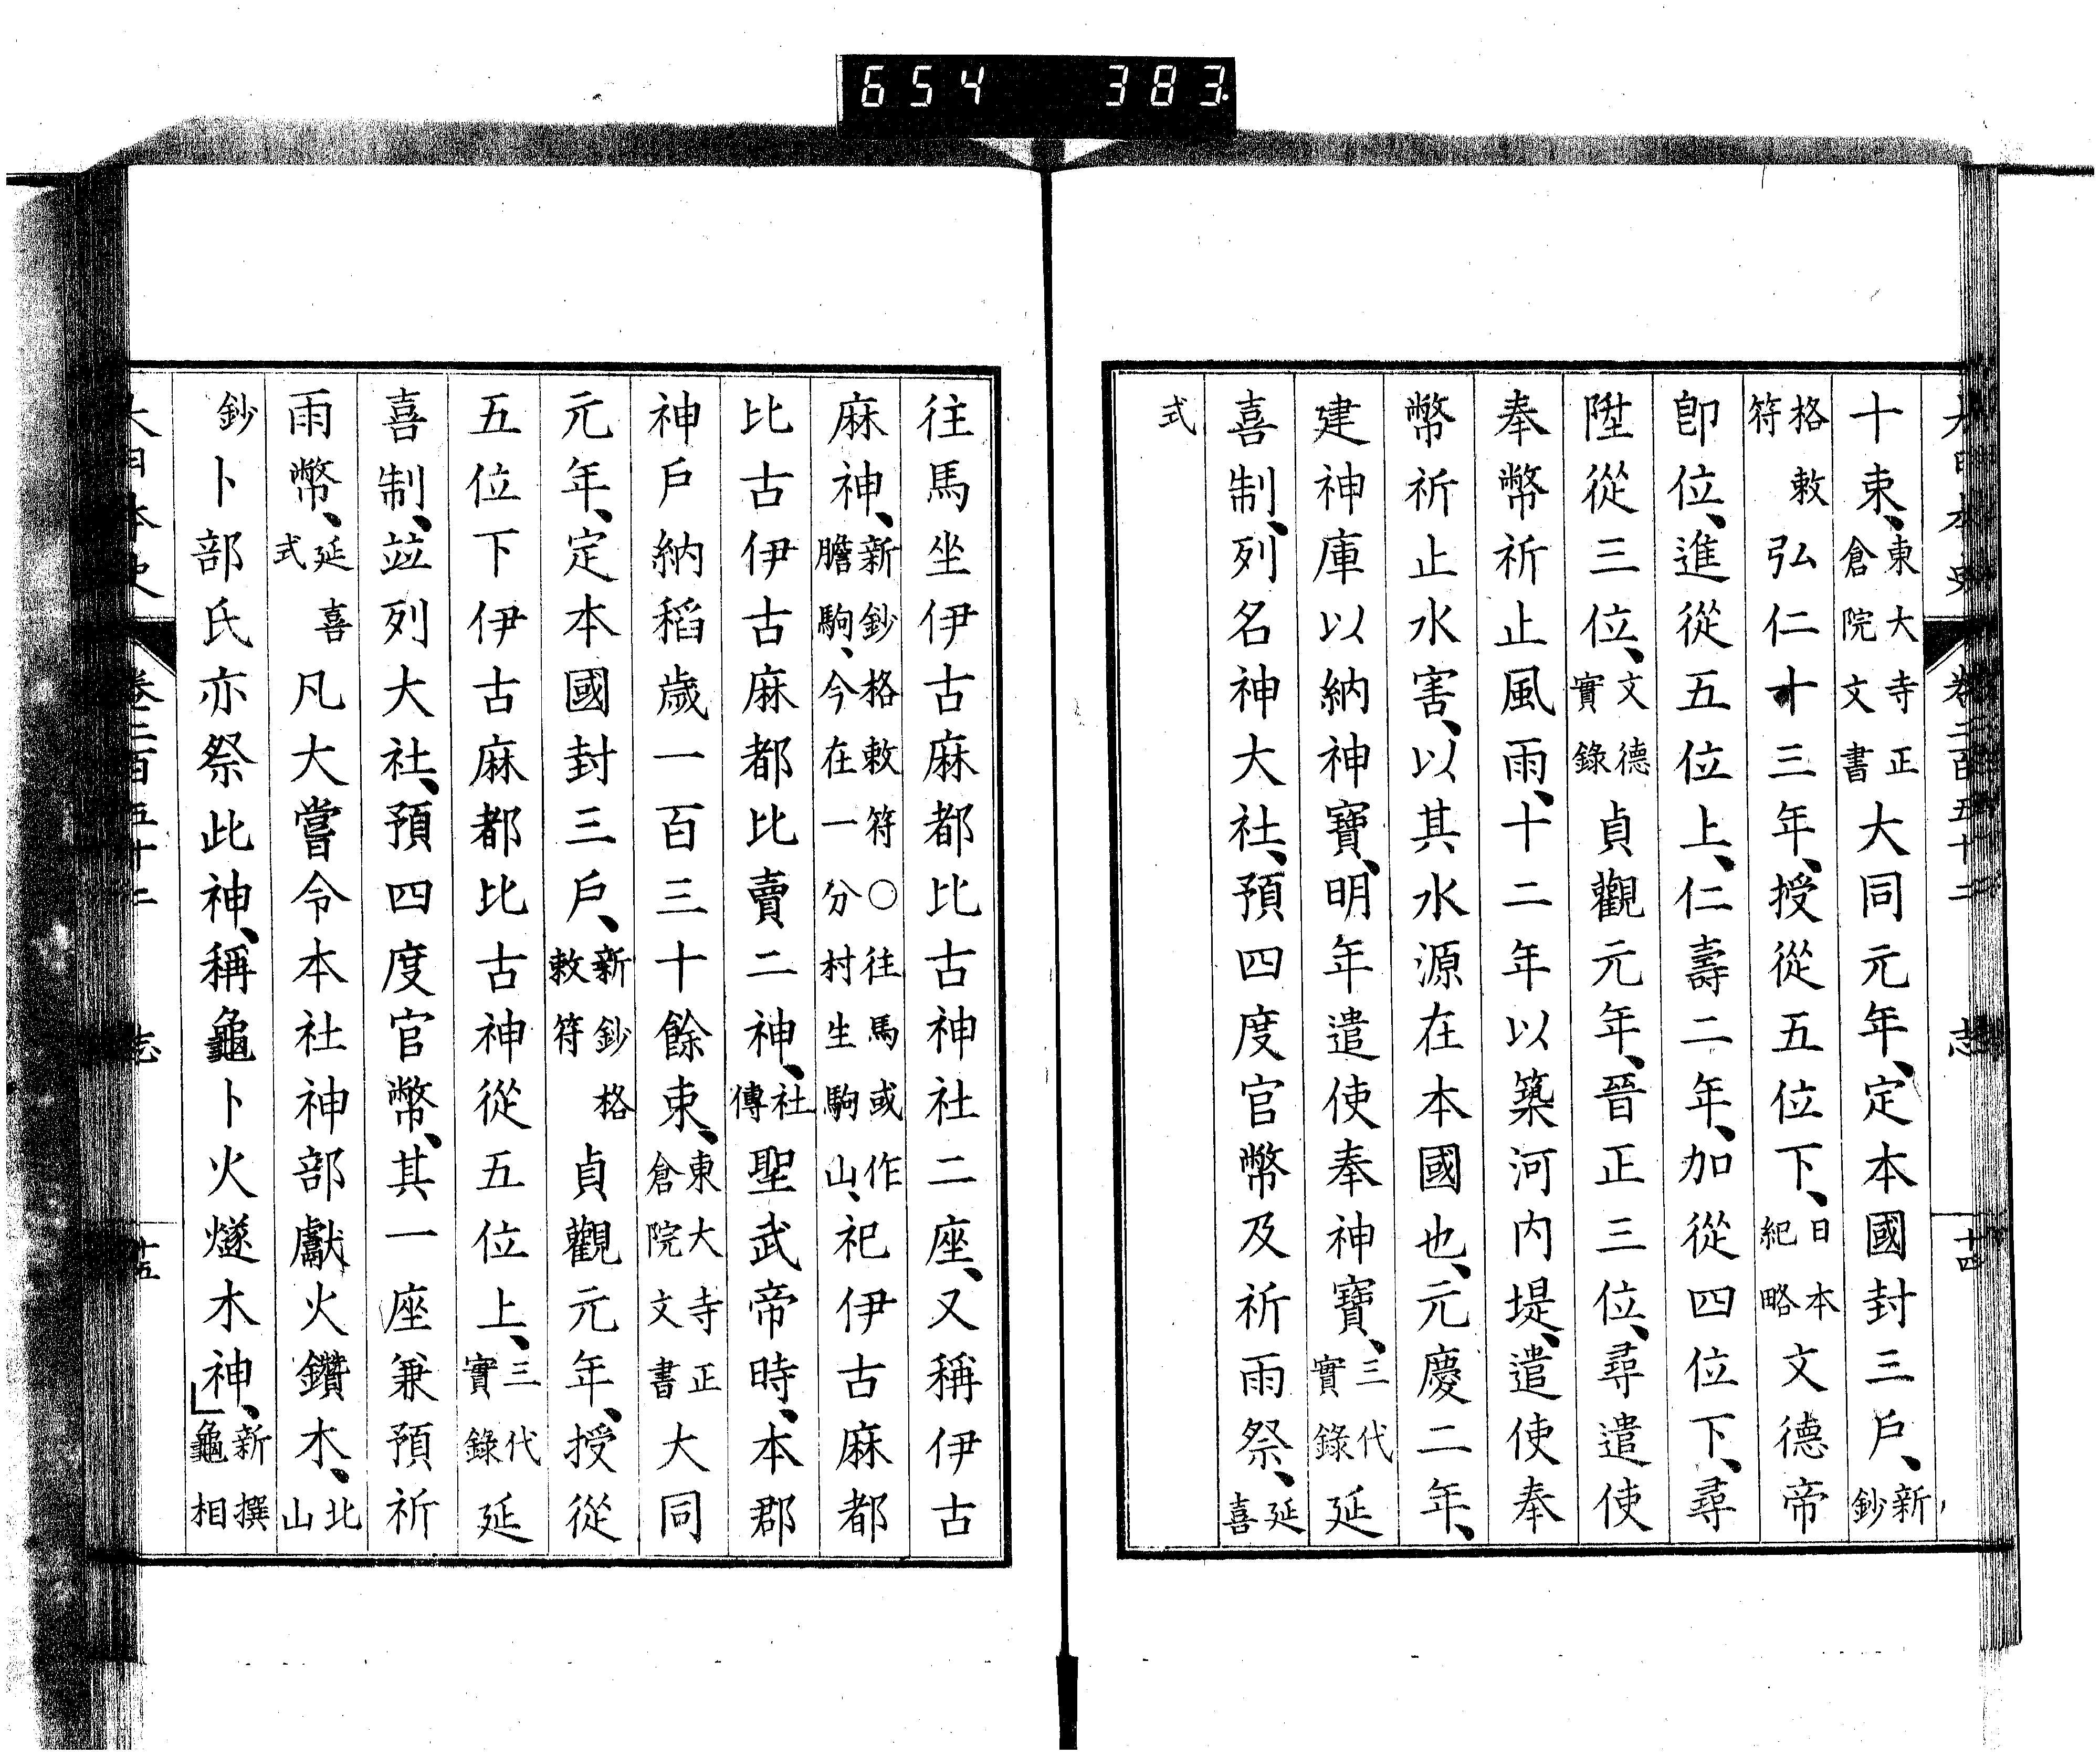 654 383
大日本史 卷二百五十二 志 十四
十束、東大寺正倉院文書大同元年、定本國封三戶、新鈔
格敕符弘仁十三年、授從五位下、日本紀略文德帝
卽位、進從五位上、仁壽二年、加從四位下、尋
陞從三位、文德實錄貞觀元年、晉正三位、尋遣使
奉幣祈止風雨、十二年以築河內堤、遣使奉
幣祈止水害、以其水源在本國也、元慶二年、
建神庫以納神寶、明年遣使奉神寶、三代實錄延
喜制、列名神大社、預四度官幣及祈雨祭、延喜
式
往馬坐伊古麻都比古神社二座、又稱伊古
麻神、新鈔格敕符〇往馬或作膽駒、今在一分村生駒山、祀伊古麻都
比古伊古麻都比賣二神、社傳聖武帝時、本郡
神戶納稻歲一百三十餘束、東大寺正倉院文書大同
元年、定本國封三戶、新鈔格敕符貞觀元年、授從
五位下伊古麻都比古神從五位上、三代實錄延
喜制、竝列大社、預四度官幣、其一座兼預祈
雨幣、延喜式凡大嘗令本社神部獻火鑽木、北山
鈔卜部氏亦祭此神、稱龜卜火燧木神、新撰龜相
大日本史 卷二百五十二 志 十五